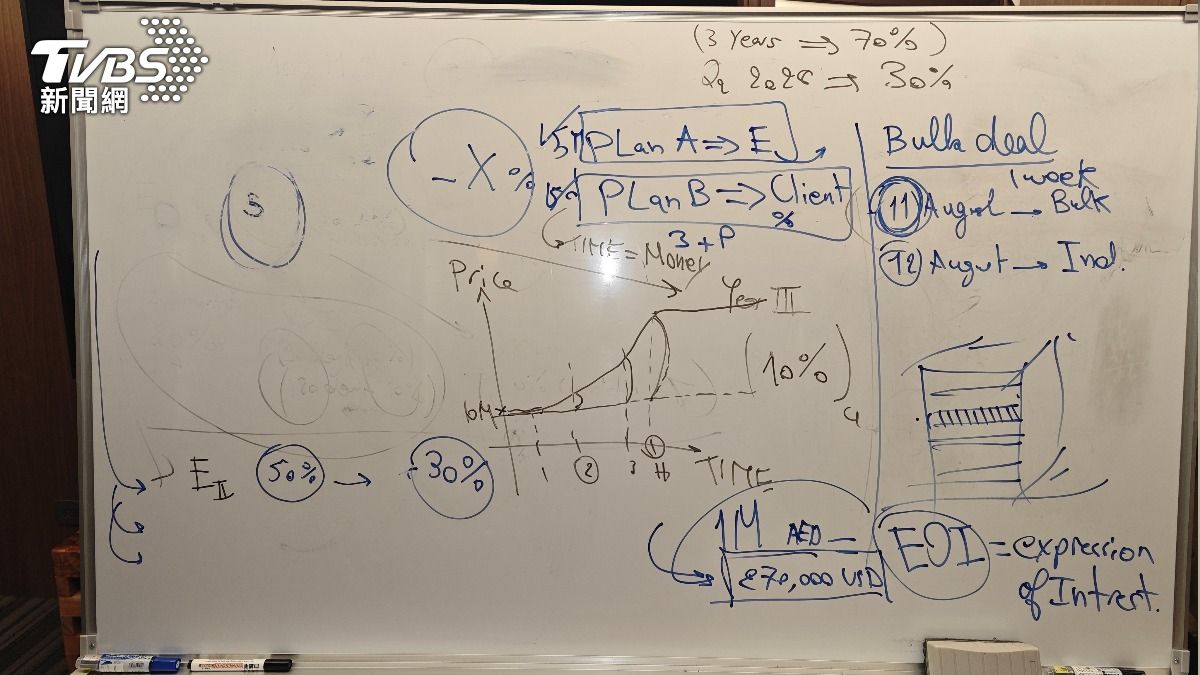 TVBS
新聞網
(3 Years => 70%)
2028 => 30%
- X %
PLan A => E
PLan B => Client
%
3 + P
TIME = Money
Bulk deal
1 week
11 August → Bulk
12 August → Ind.
S
Price
Year III
(10%)
1 2 3 H
TIME
E II 50% → -30%
1M AED
270,000 USD
EOI = expression
of Intrest.